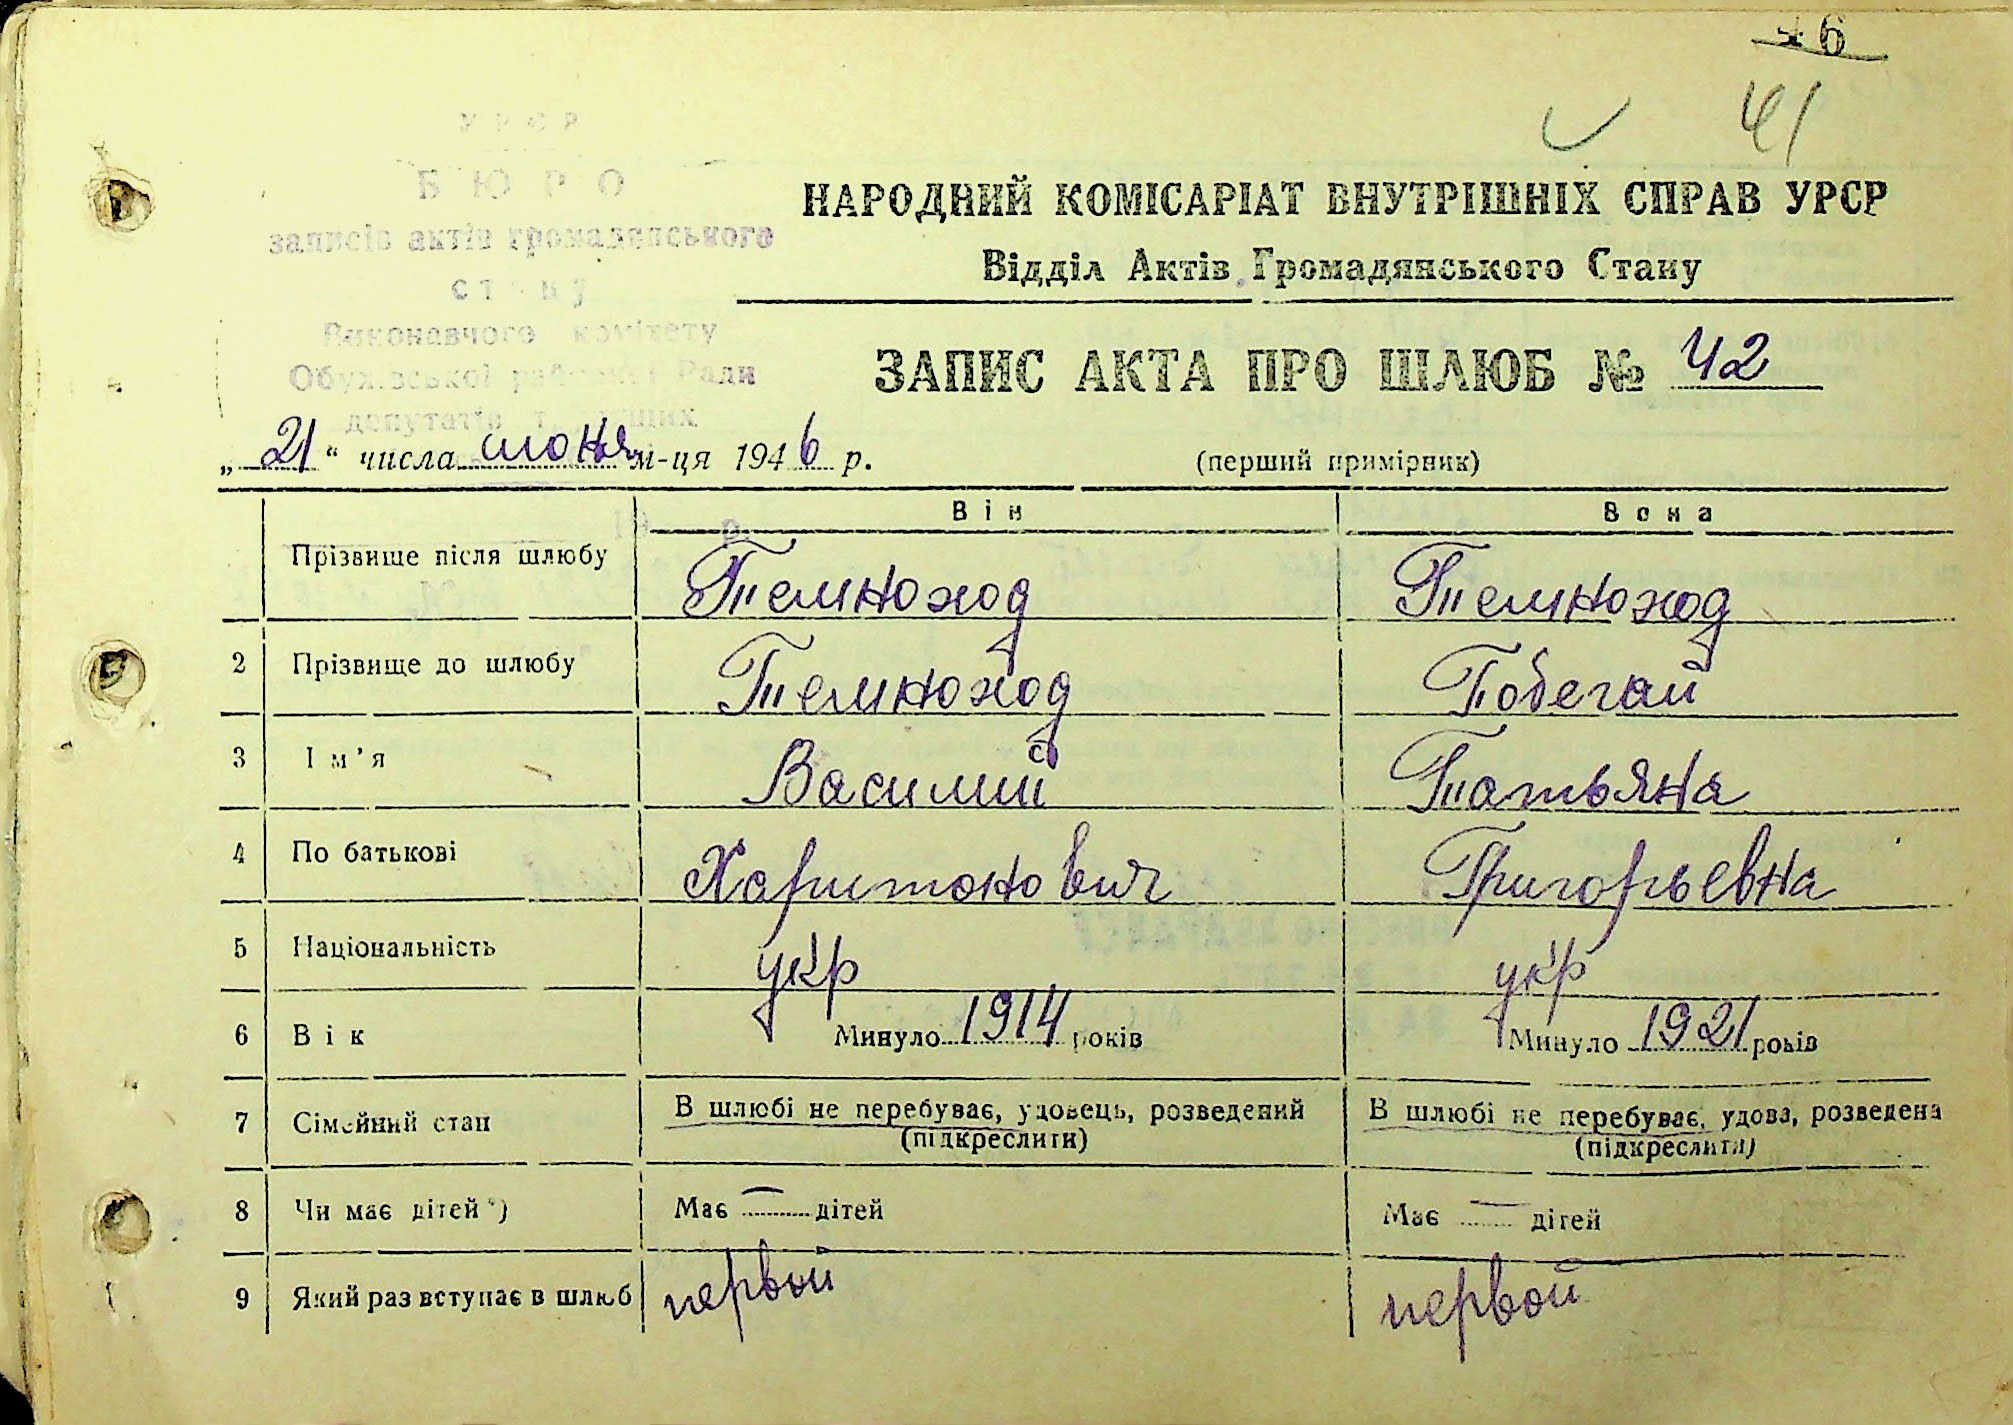 46
41
УРСР
БЮРО
записів актів громадянського
стану
Виконавчого комітету
Обухівської районної Ради
депутатів трудящих
НАРОДНИЙ КОМІСАРІАТ ВНУТРІШНІХ СПРАВ УРСР
Відділ Актів Громадянського Стану
ЗАПИС АКТА ПРО ШЛЮБ № 42
„ 21 “ числа июня м-ця 1946 р.
(перший примірник)
Він Вона
Прізвище після шлюбу Темноход Темноход
2 Прізвище до шлюбу Темноход Побегай
3 Ім’я Василий Татьяна
4 По батькові Харитонович Григорьевна
5 Національність укр укр
6 Вік Минуло 1914 років Минуло 1921 років
7 Сімейний стан В шлюбі не перебуває, удовець, розведений В шлюбі не перебуває, удова, розведена
(підкреслити) (підкреслити)
8 Чи має дітей*) Має — дітей Має — дітей
9 Який раз вступає в шлюб первой первой